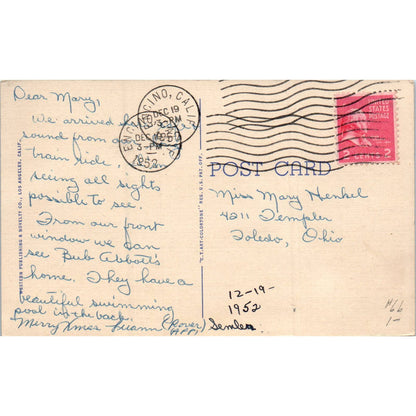 Dear Mary,
We arrived
sound from our
train ride
seeing all sights
possible to see.
From our front
window we can
see Bub Abbott's
home. They have a
beautiful swimming
pool in the back.
Merry Xmas Luann (over)
ENCINO, CALIF.
DEC 19
3-PM
1952
UNITED STATES
POSTAGE
2 CENTS 2
POST CARD
Miss Mary Henkel
4211 Templer
Toledo, Ohio
12-19-
1952
WESTERN PUBLISHING & NOVELTY CO., LOS ANGELES, CALIF.
"C.T.ART-COLORTONE" REG. U.S. PAT. OFF.